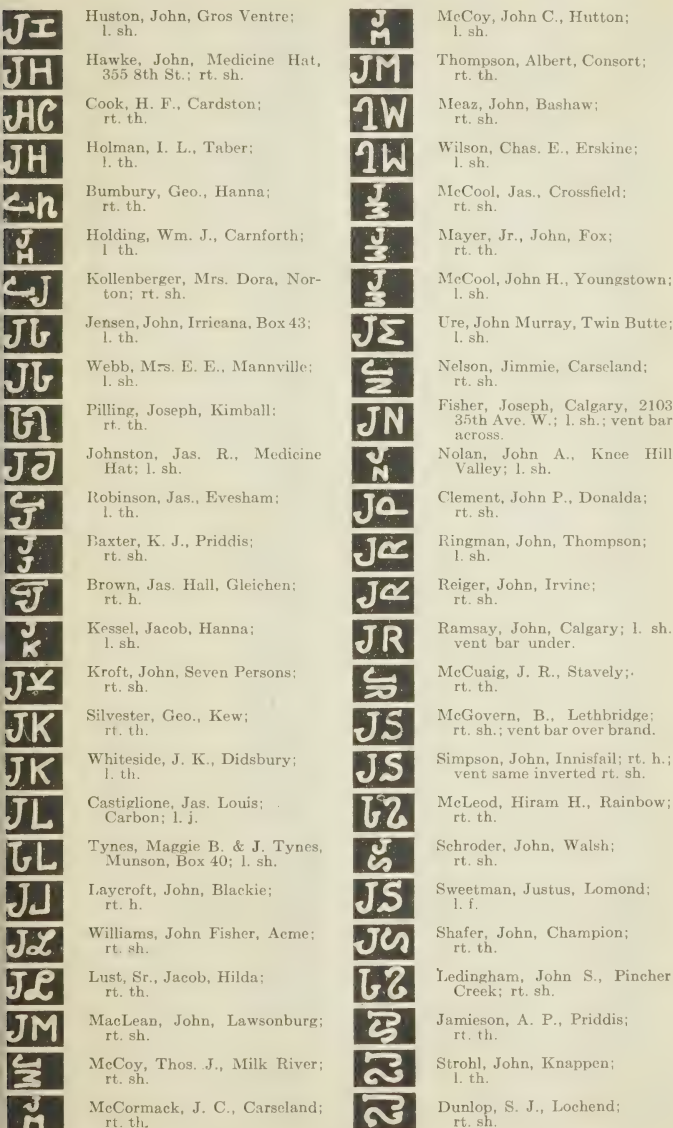 Huston, John, Gros Ventre;
l. sh.
JH Hawke, John, Medicine Hat,
355 8th St.; rt. sh.
JHC Cook, H. F., Cardston;
rt. th.
JH Holman, I. L., Taber;
l. th.
Bumbury, Geo., Hanna;
rt. th.
J
H Holding, Wm. J., Carnforth;
l th.
Kollenberger, Mrs. Dora, Nor-
ton; rt. sh.
Jensen, John, Irricana, Box 43;
l. th.
Webb, Mrs. E. E., Mannville;
l. sh.
Pilling, Joseph, Kimball;
rt. th.
Johnston, Jas. R., Medicine
Hat; l. sh.
Robinson, Jas., Evesham;
l. th.
J
J Baxter, K. J., Priddis;
rt. sh.
Brown, Jas. Hall, Gleichen;
rt. h.
J
K Kessel, Jacob, Hanna;
l. sh.
Kroft, John, Seven Persons;
rt. sh.
JK Silvester, Geo., Kew;
rt. th.
JK Whiteside, J. K., Didsbury;
l. th.
JL Castiglione, Jas. Louis;
Carbon; l. j.
Tynes, Maggie B. & J. Tynes,
Munson, Box 40; l. sh.
Laycroft, John, Blackie;
rt. h.
JL Williams, John Fisher, Acme;
rt. sh.
JL Lust, Sr., Jacob, Hilda;
rt. th.
JM MacLean, John, Lawsonburg;
rt. sh.
McCoy, Thos. J., Milk River;
rt. sh.
McCormack, J. C., Carseland;
rt. th.
J
M McCoy, John C., Hutton;
l. sh.
JM Thompson, Albert, Consort;
rt. th.
Meaz, John, Bashaw;
rt. sh.
Wilson, Chas. E., Erskine;
l. sh.
McCool, Jas., Crossfield;
rt. sh.
Mayer, Jr., John, Fox;
rt. th.
McCool, John H., Youngstown;
l. sh.
Ure, John Murray, Twin Butte;
l. sh.
Nelson, Jimmie, Carseland;
rt. sh.
JN Fisher, Joseph, Calgary, 2103
35th Ave. W.; l. sh.; vent bar
across.
J
N Nolan, John A., Knee Hill
Valley; l. sh.
Clement, John P., Donalda;
rt. sh.
Ringman, John, Thompson;
l. sh.
Reiger, John, Irvine;
rt. sh.
JR Ramsay, John, Calgary; l. sh.
vent bar under.
McCuaig, J. R., Stavely;
rt. th.
JS McGovern, B., Lethbridge;
rt. sh.; vent bar over brand.
JS Simpson, John, Innisfail; rt. h.;
vent same inverted rt. sh.
McLeod, Hiram H., Rainbow;
rt. th.
Schroder, John, Walsh;
rt. sh.
JS Sweetman, Justus, Lomond;
l. f.
Shafer, John, Champion;
rt. th.
Ledingham, John S., Pincher
Creek; rt. sh.
Jamieson, A. P., Priddis;
rt. th.
Strohl, John, Knappen;
l. th.
Dunlop, S. J., Lochend;
rt. sh.